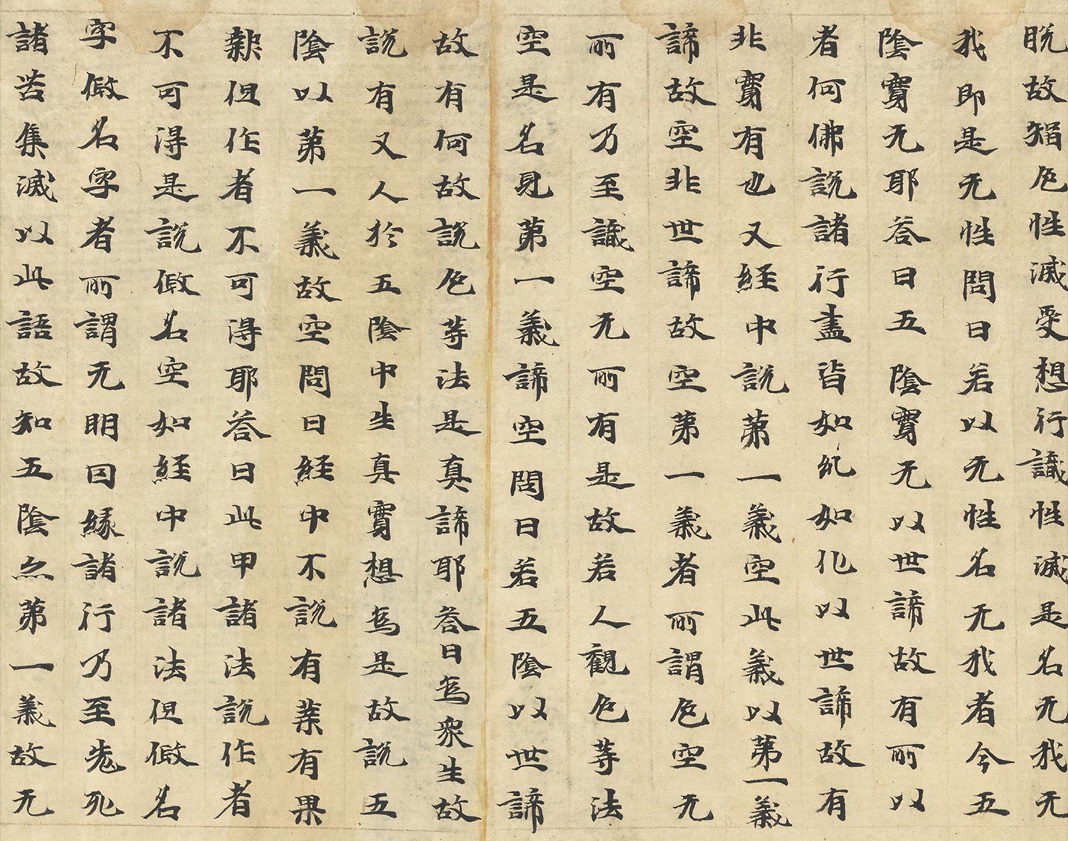 脱故猖色性滅受想行識性滅是名无我无
我即是无性問曰若以无性名无我者今五
陰實无耶荅曰五陰實无以世諦故有所以
者何佛說諸行盡皆如紈如化以世諦故有
非實有也又経中說第一義空此義以第一義
諦故空非世諦故空第一義者所謂色空无
所有乃至識空无所有是故若人觀色等法
空是名見第一義諦空問曰若五陰以世諦
故有何故說色等法是真諦耶荅曰為衆生故
說有又人於五陰中生真實想為是故說五
陰以第一義故空問曰経中不說有業有果
報但作者不可得耶荅曰此甲諸法說作者
不可得是說假名空如経中說諸法但假名
字假名字者所謂无明因緣諸行乃至老死
諸苦集滅以此語故知五陰亦第一義故无